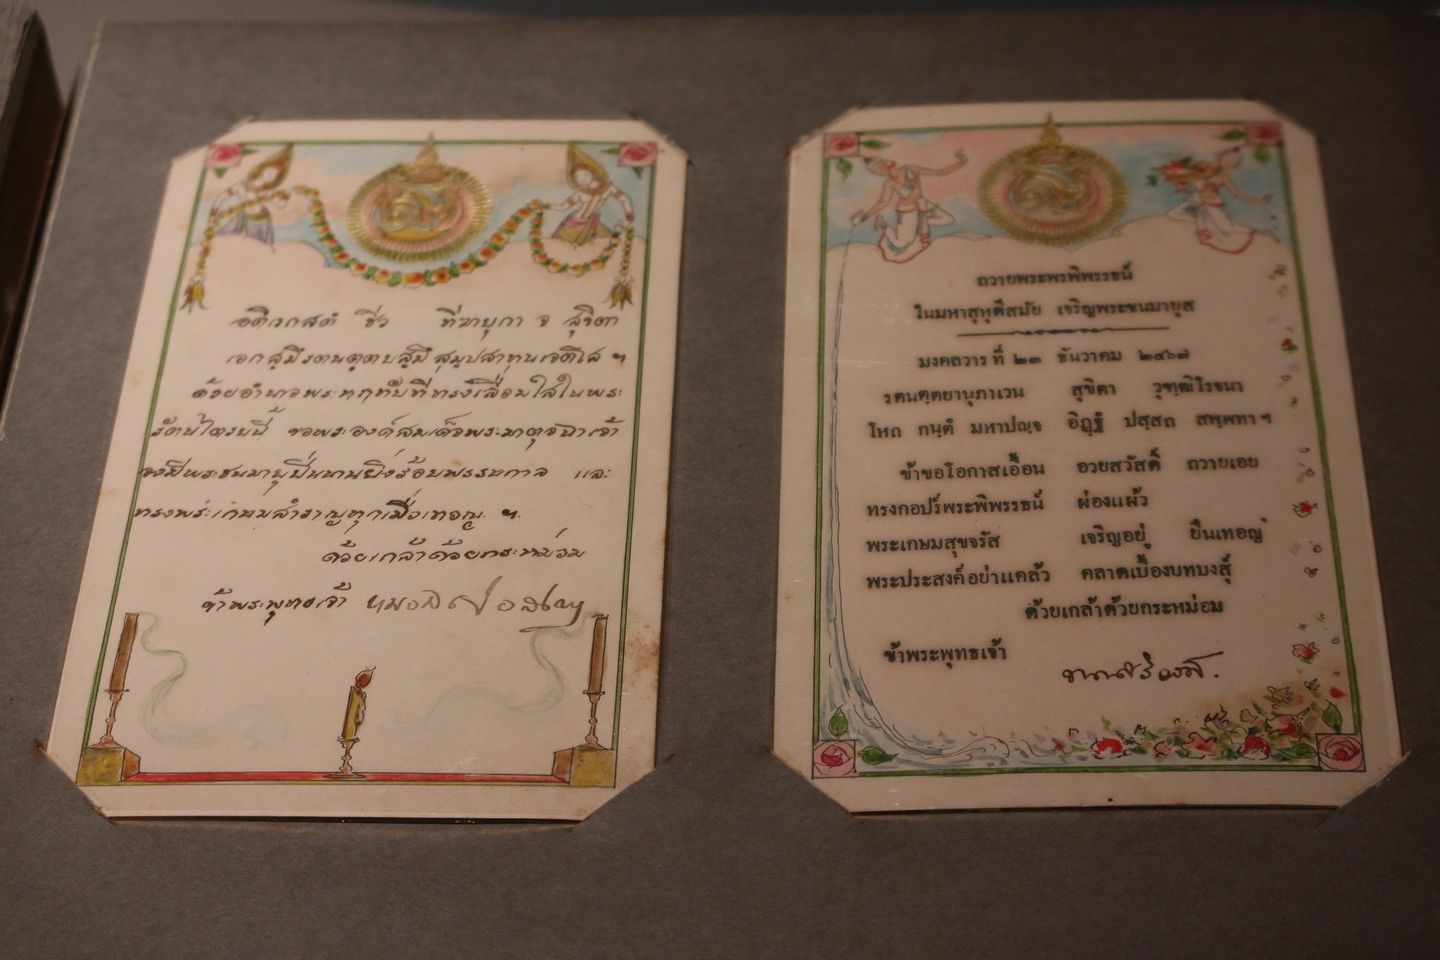 อติเรกสตํ ชีว ทีฆายุกา จ สุขิตา
ด้วยอำนาจพระหฤทัยที่ทรงเลื่อมใสในพระ
รัตนไตรยนี้ ขอพระองค์สมเด็จพระมาตุจฉาเจ้า
จงมีพระชนมายุยืนนานยิ่งร้อยพรรษกาล และ
ทรงพระเกษมสำราญทุกเมื่อเทอญ ฯ
ด้วยเกล้าด้วยกระหม่อม
ข้าพระพุทธเจ้า
ถวายพระพรพิพรรธน์
ในมหาสุหุติสมัย เจริญพระชนมายุส
มงคลวาร ที่ ๒๓ ธันวาคม ๒๔๖๗
รตนตฺตยานุภาเวน สุขิตา วุฑฺฒิโรจนา
โหถ กนฺตํ มหาปญฺจ อิฏฺฐํ ปสฺสถ สพฺพทา ฯ
ข้าขอโอกาสเอื้อน อวยสวัสดิ์ ถวายเอย
ทรงกอปร์พระพิพรรธน์ ผ่องแผ้ว
พระเกษมสุขจรัส เจริญอยู่ ยืนเทอญ
พระประสงค์อย่าแคล้ว คลาดเบื้องบทบงสุ์
ด้วยเกล้าด้วยกระหม่อม
ข้าพระพุทธเจ้า